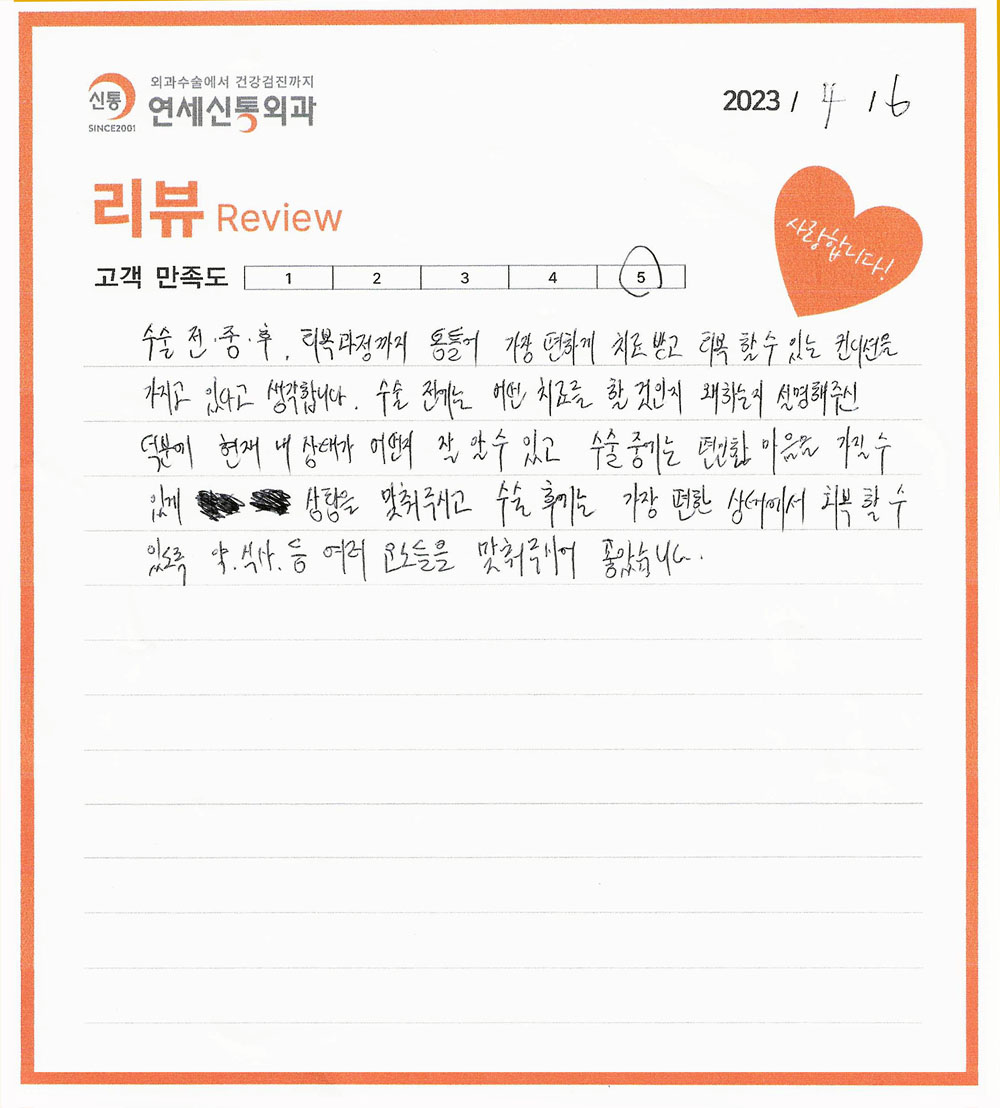 외과수술에서 건강검진까지
신통 연세신통외과
SINCE2001
2023 / 4 / 6
리뷰 Review
사랑합니다!
고객 만족도 1 2 3 4 5
수술 전·중·후, 회복과정까지 통틀어 가장 편하게 치료 받고 회복 할 수 있는 컨디션을
가지고 있다고 생각합니다. 수술 전에는 어떤 치료를 할 것인지 왜하는지 설명해주신
덕분에 현재 내 상태가 어떤지 잘 알 수 있고 수술 중에는 편안함 마음을 가질 수
있게 상황을 맞춰주시고 수술 후에는 가장 편한 상태에서 회복 할 수
있도록 약.식사.등 여러 요소들을 맞춰주시어 좋았습니다.